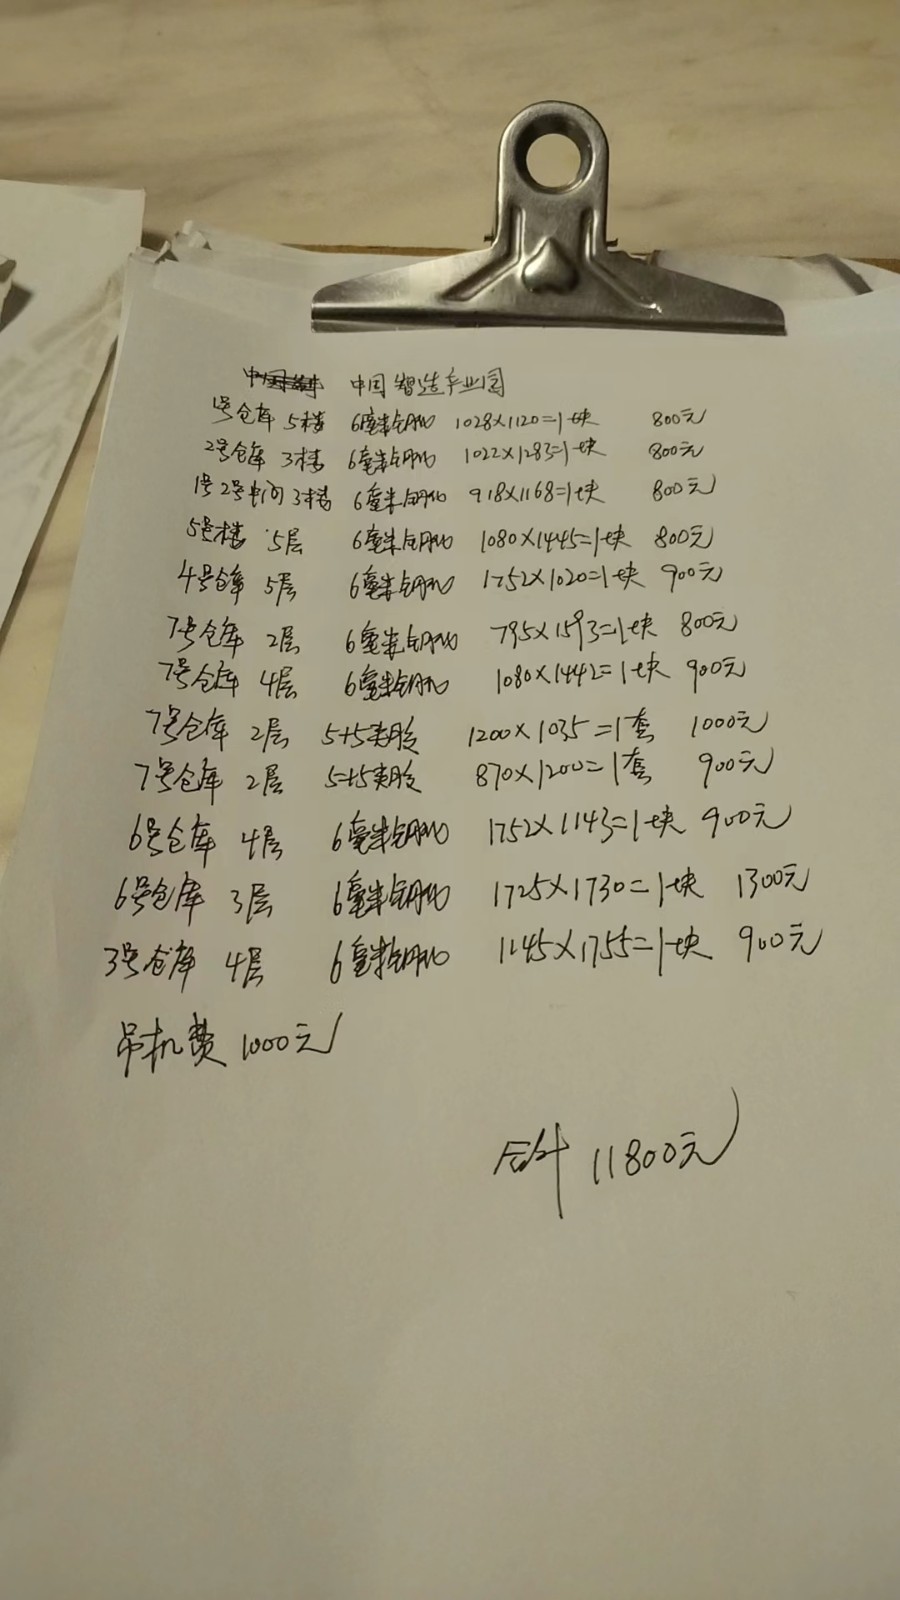 中国智造产业园
1号仓库 5楼 6毫米钢化 1028×1120=1块 800元
2号仓库 3楼 6毫米钢化 1022×1283=1块 800元
1号2号中间3楼 6毫米钢化 918×1168=1块 800元
5号楼 5层 6毫米钢化 1080×1445=1块 800元
4号仓库 5层 6毫米钢化 1752×1020=1块 900元
7号仓库 2层 6毫米钢化 795×1593=1块 800元
7号仓库 4层 6毫米钢化 1080×1442=1块 900元
7号仓库 2层 5+5夹胶 1200×1035=1套 1000元
7号仓库 2层 5+5夹胶 870×1200=1套 900元
6号仓库 4层 6毫米钢化 1752×1143=1块 900元
6号仓库 3层 6毫米钢化 1725×1730=1块 1300元
3号仓库 4层 6毫米钢化 1145×1755=1块 900元
吊机费 1000元
11800元